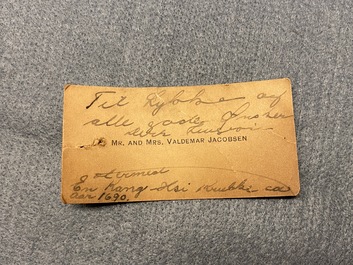 Til Lykke og
alle gode Ønsker
MR. AND MRS. VALDEMAR JACOBSEN
En Kang-Hsi Krukke ca
Aar 1690.